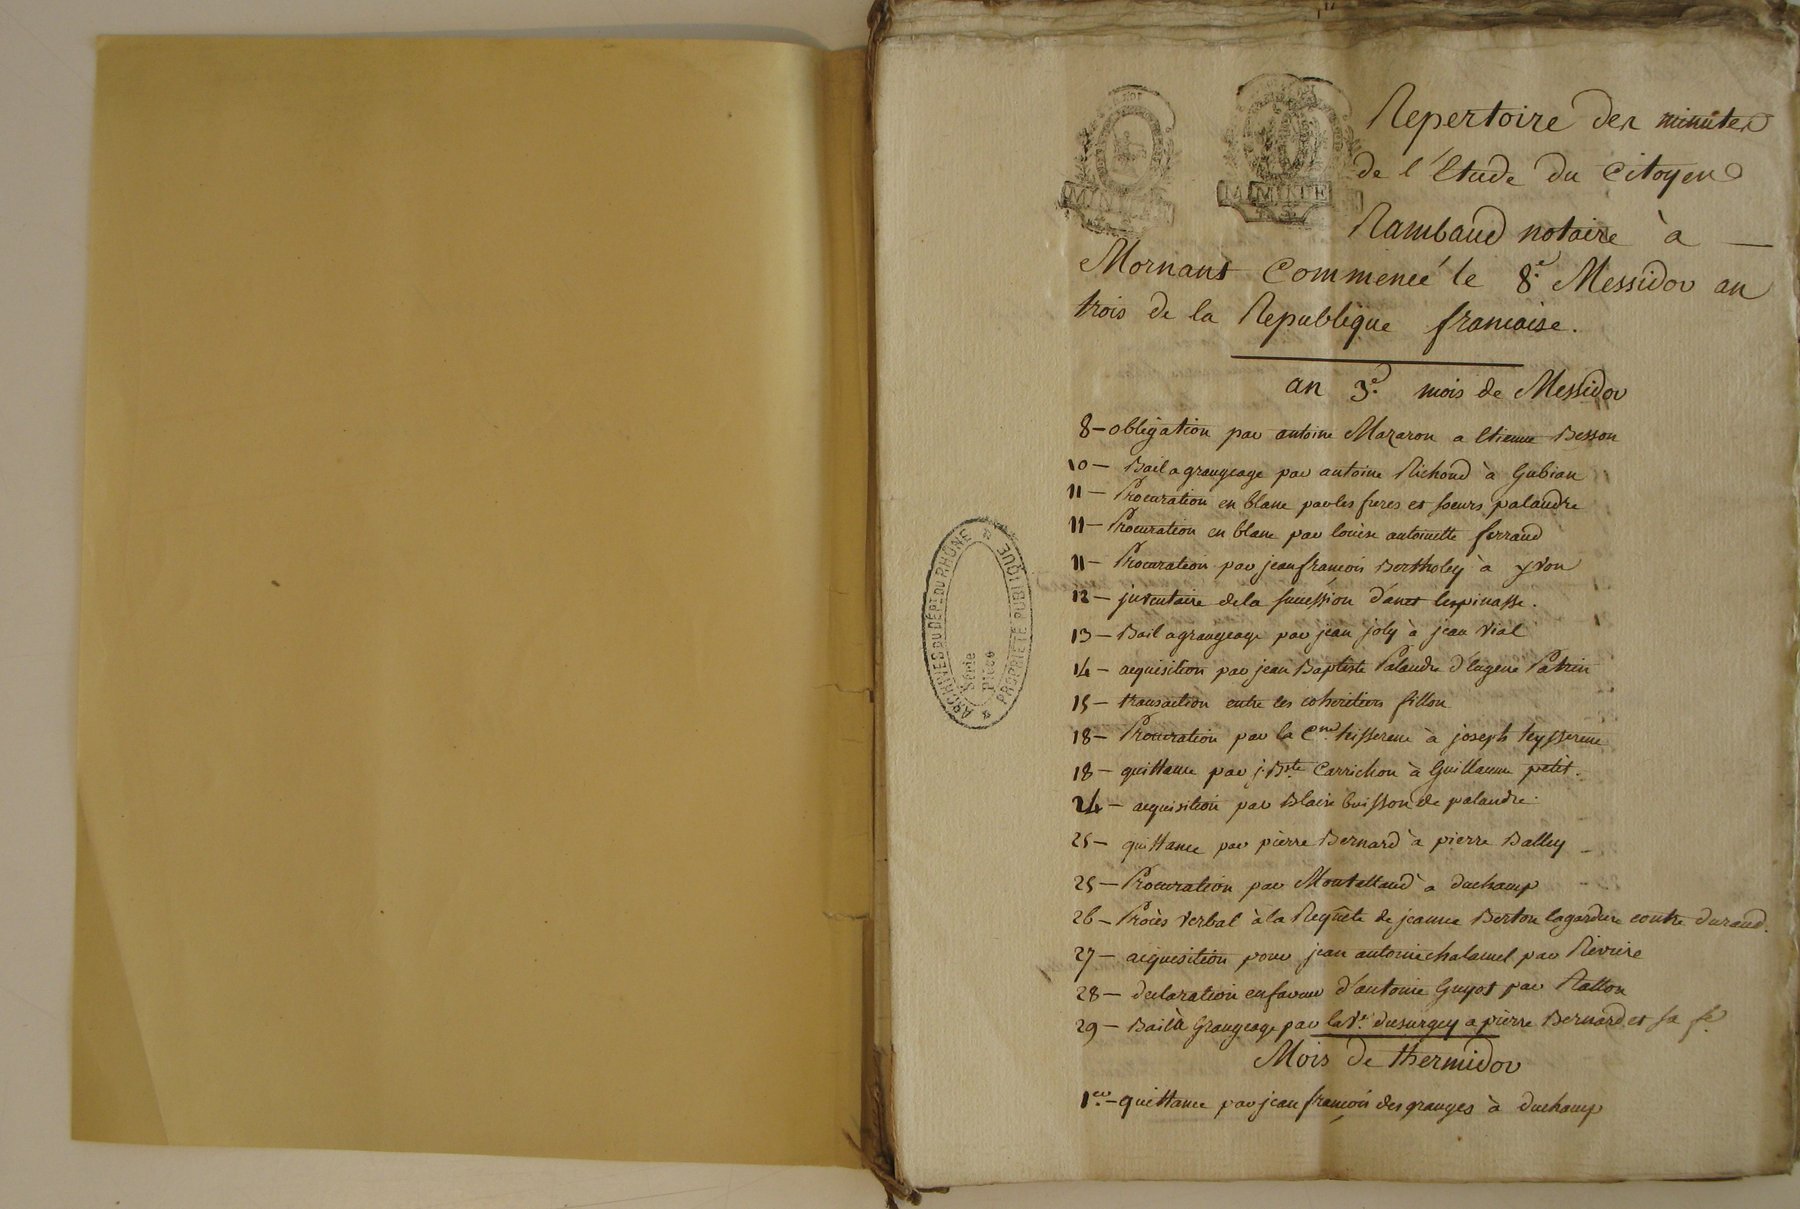 Repertoire des minutes
de l'Etude du Citoyen
Rambaud notaire à —
Mornant Commencé le 8e. Messidor an
trois de la Republique francaise.
an 3e. mois de Messidor
8 — obligation par antoine Mazaron a Etienne Besson
10 — Bail a grangeage par antoine Richond à Gubian
11 — Procuration en blanc par les freres et soeurs palandre
11 — Procuration en blanc par louise antoinette ferrand
11 — Procuration par jean francois Bertholey à yvon
12 — inventaire de la succession d'anet lespinasse.
13 — Bail a grangeage par jean joly à jean Vial
14 — acquisition par jean Baptiste Palandre d'Eugene Patrin
15 — transaction entre les cohéritiers fillon
18 — Procuration par la Cne. teisserenc à joseph teysserenc
18 — quittance par j. Bte. Carrichon à Guillaume petit.
24 — acquisition par Blaise buisson de palandre.
25 — quittance par pierre Bernard à pierre Balley
25 — Procuration par Montelland à duchamp
26 — Procès verbal à la Requête de jeanne Berton lagardere contre durand.
27 — acquisition pour jean antoine chalamel par Riviere
28 — declaration en faveur d'antoine Guyot par Ratton
29 — Bail à Grangeage par la Ve. dusurgey a pierre Bernard et sa fe.
Mois de thermidor
1er. — quittance par jean francois desgranges à duchamp
MINUTE
MINUTE
ARCHIVES DU DÉPT. DU RHÔNE
PROPRIÉTÉ PUBLIQUE
Série
Pièce